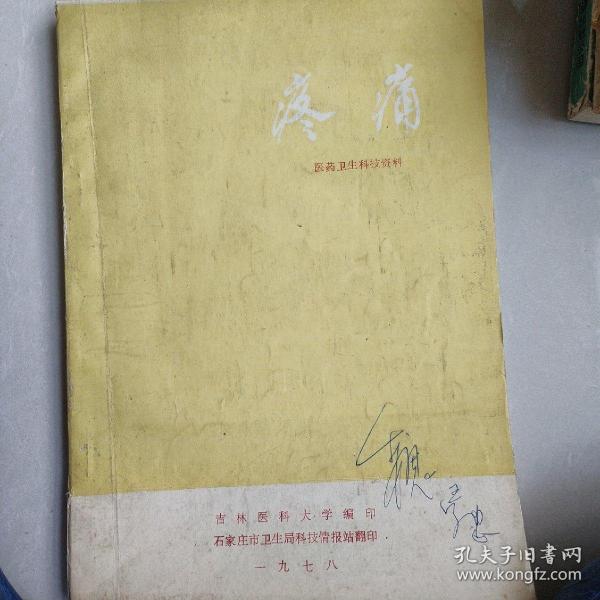 疼痛
医药卫生科技资料
吉林医科大学编印
石家庄市卫生局科技情报站翻印
一九七八
孔夫子旧书网
www.kongfz.com